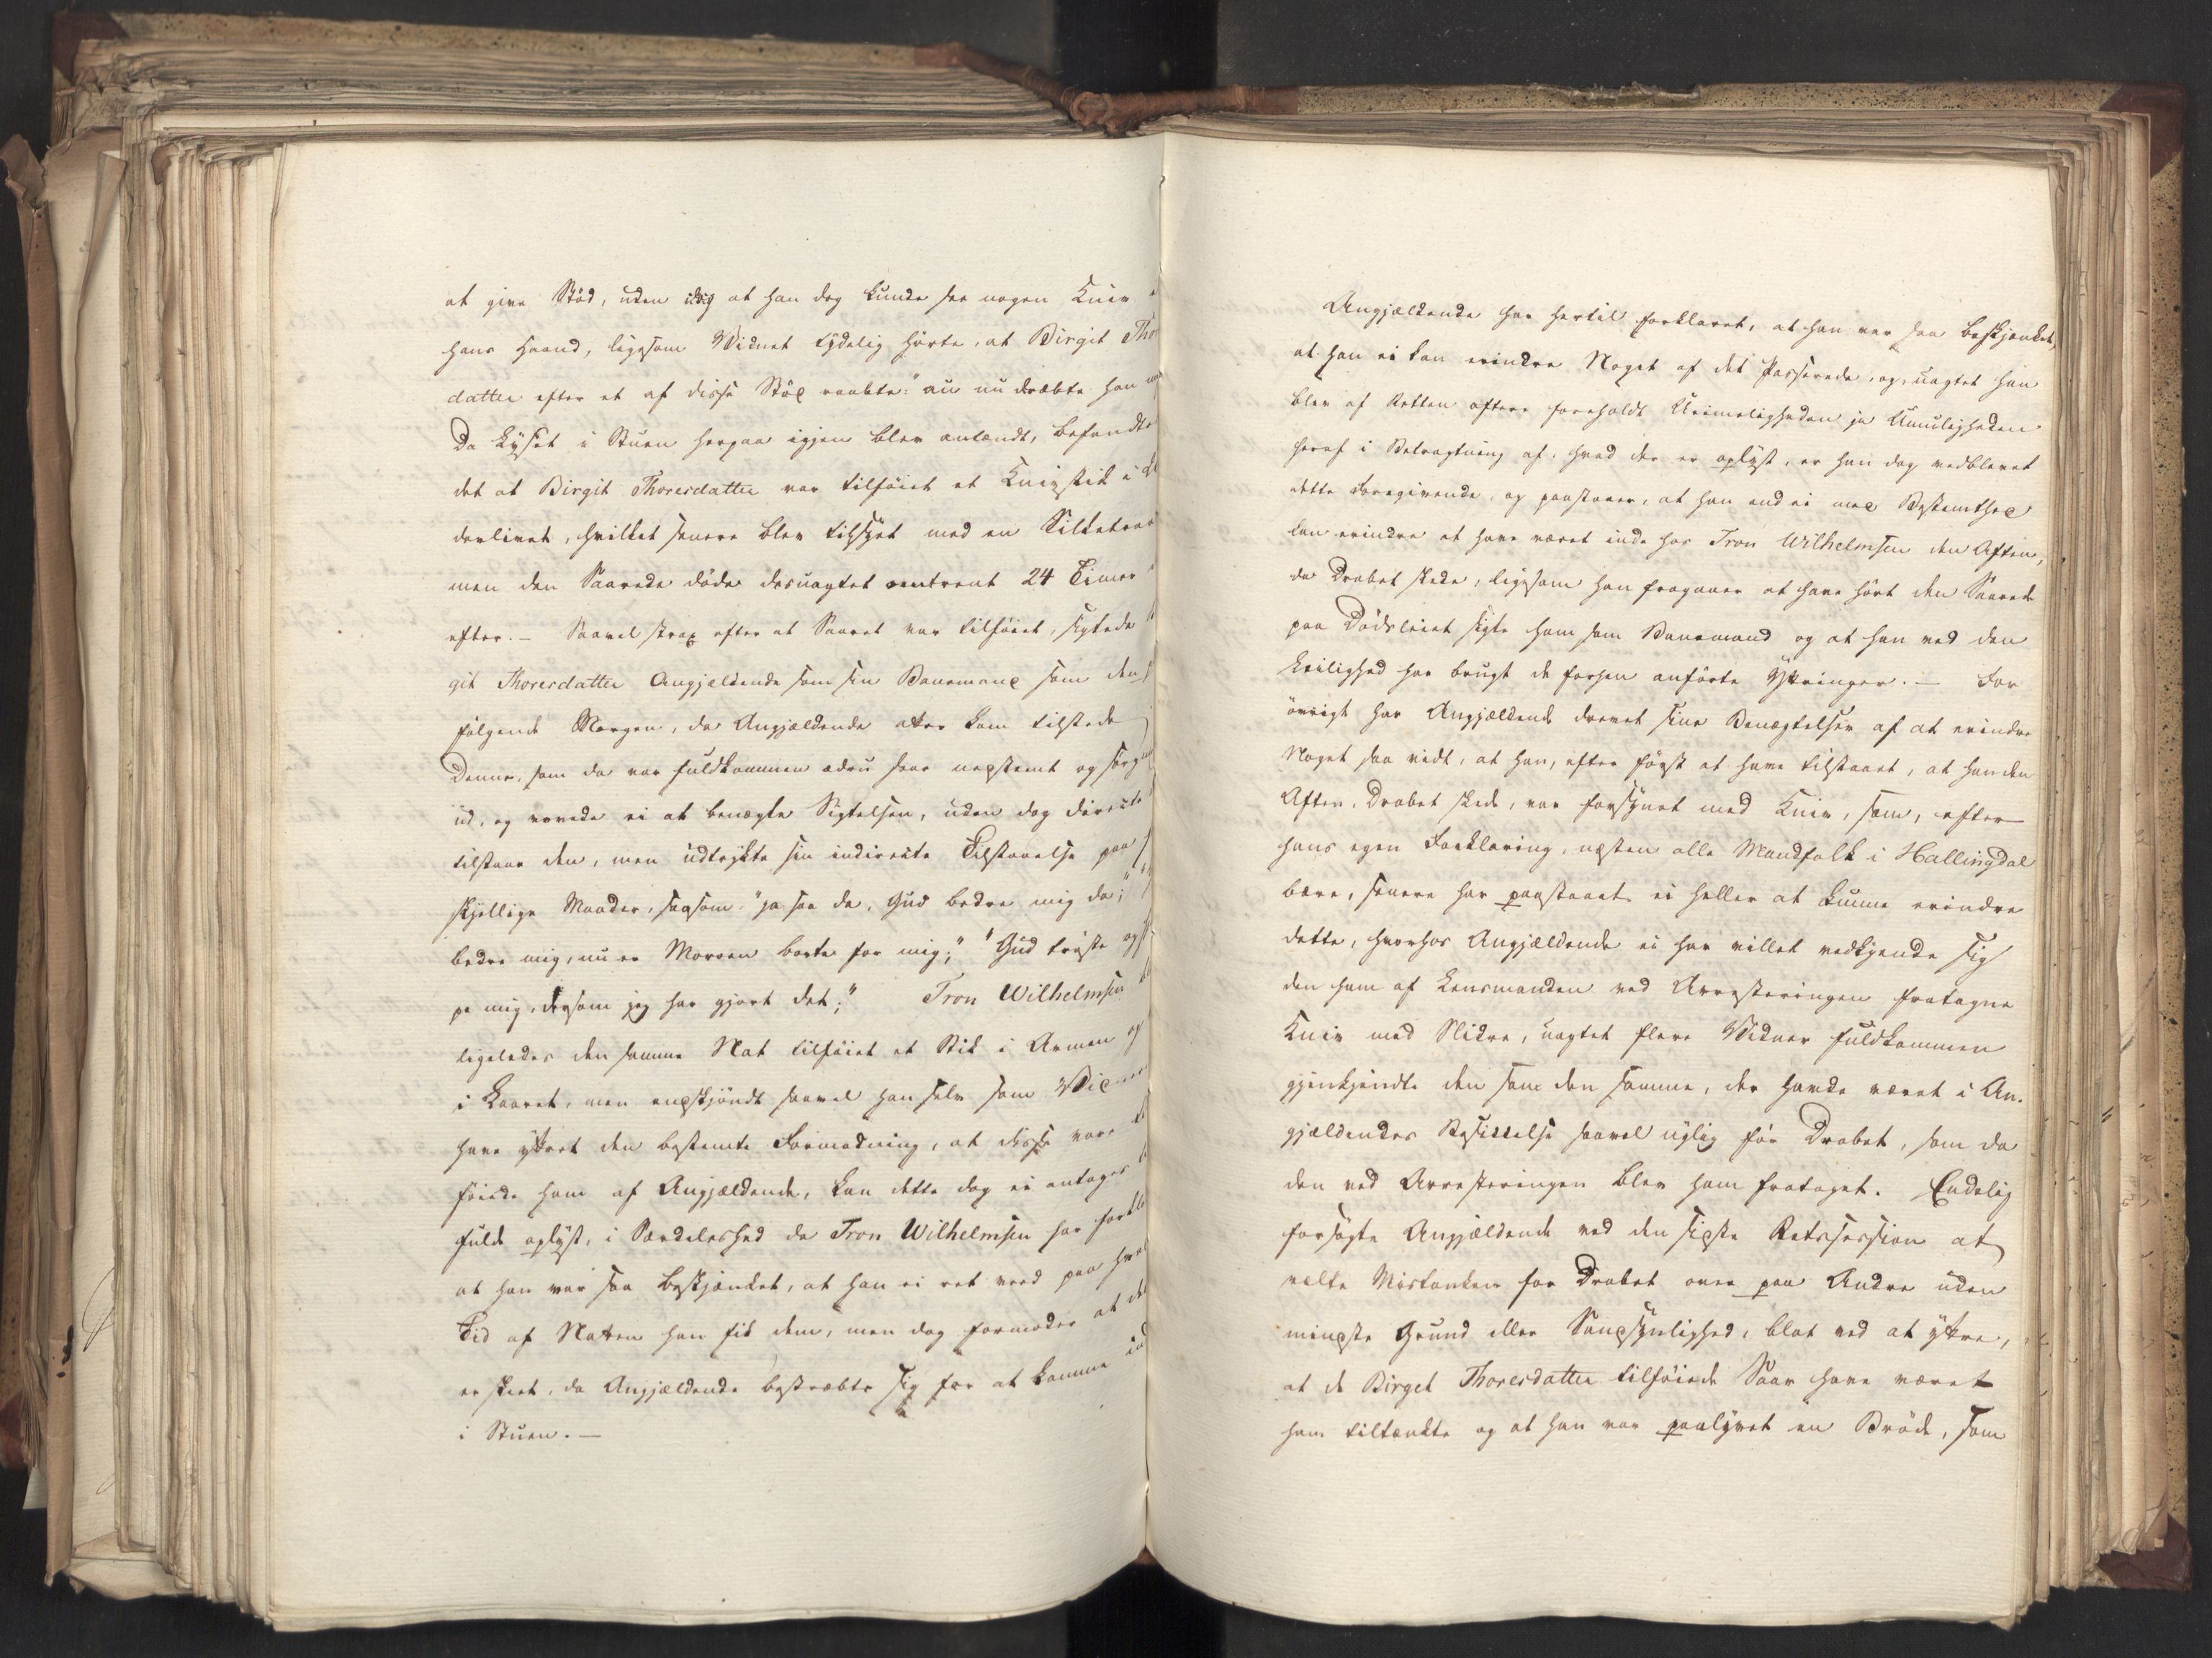 at give Stød, uden at han dog kunde see nogen Kniv i
hans Haand, ligesom Vidnet tydelig hørte, at Birgit Tho
datter efter et af disse Stød raabte: "au nu dræbte han
Da Lyset i Stuen herpaa igjen blev antændt, befandtes
det at Birgit Thoresdatter var tilføiet et Knivstik i
derlivet, hvilket senere blev tilsyet med en Silketraad
men den Saarede døde desuagtet omtrent 24 Timer
efter. — Saavel strax efter at Saaret var tilføiet, sigtede
git Thoresdatter Angjældende som sin Banemand som den
følgende Morgen, da Angjældende atter kom tilstede
Denne, som da var fuldkommen ædru saae nedstemt og sørg
ud, og vovede ei at benægte Sigtelsen, uden dog directe
tilstaae den, men udtrykte sin indirecte Tilstaaelse paa
skjellige Maader, saasom: "ja saa da, Gud bedre mig da;"
bedre mig, nu er Moroen borte for mig;" "Gud trøste og
pe mig, dersom jeg har gjort det;" Tron Wilhelmsen
ligeledes den samme Nat tilføiet et Stik i Armen og
i Laaret, men endskjøndt saavel han selv som Vid
have yttret den bestemte Formodning, at disse vare
føiede ham af Angjældende, kan dette dog ei antages
fuldt oplyst, i Særdeleshed da Tron Wilhelmsen har forkl
at han var saa beskjænket, at han ei ret veed paa hva
Tid af Natten han fik dem, men dog formoder at det
er skeet, da Angjældende bestræbte sig for at komme ind
i Stuen. —
Angjældende har hertil forklaret, at han var saa beskjænket,
at han ei kan erindre Noget af det Passerede, og, uagtet han
blev af Retten oftere foreholdt Urimeligheden ja Umuligheden
heraf i Betragtning af, hvad der er oplyst, er han dog vedblevet
dette Foregivende, og paastaaer, at han end ei med Bestemthed
kan erindre at have været inde hos Tron Wilhelmsen den Aften,
da Drabet skede, ligesom han fragaaer at have hørt den Saarede
paa Dødsleiet sigte ham som Banemand og at han ved den
Leilighed har brugt de forhen anførte Yttringer. — For
øvrigt har Angjældende drevet sine Benægtelser af at erindre
Noget saa vidt, at han, efter først at have tilstaaet, at han den
Aften, Drabet skede, var forsynet med Kniv, som, efter
hans egen Forklaring, næsten alle Mandfolk i Hallingdal
bære, senere har paastaaet ei heller at kunne erindre
dette, hvorhos Angjældende ei har villet vedkjende sig
den ham af Lensmanden ved Arresteringen fratagne
Kniv med Slidre, uagtet flere Vidner fuldkommen
gjenkjendte den som den samme, der havde været i An-
gjældendes Besiddelse saavel nylig før Drabet, som da
den ved Arresteringen blev ham frataget. Endelig
forsøgte Angjældende ved den sidste Retssession at
vælte Mistanken for Drabet over paa Andre uden
mindste Grund eller Sandsynlighed, blot ved at yttre,
at de Birget Thoresdatter tilføiede Saar have været
ham tiltænkte og at han var paalyvet en Brøde, som